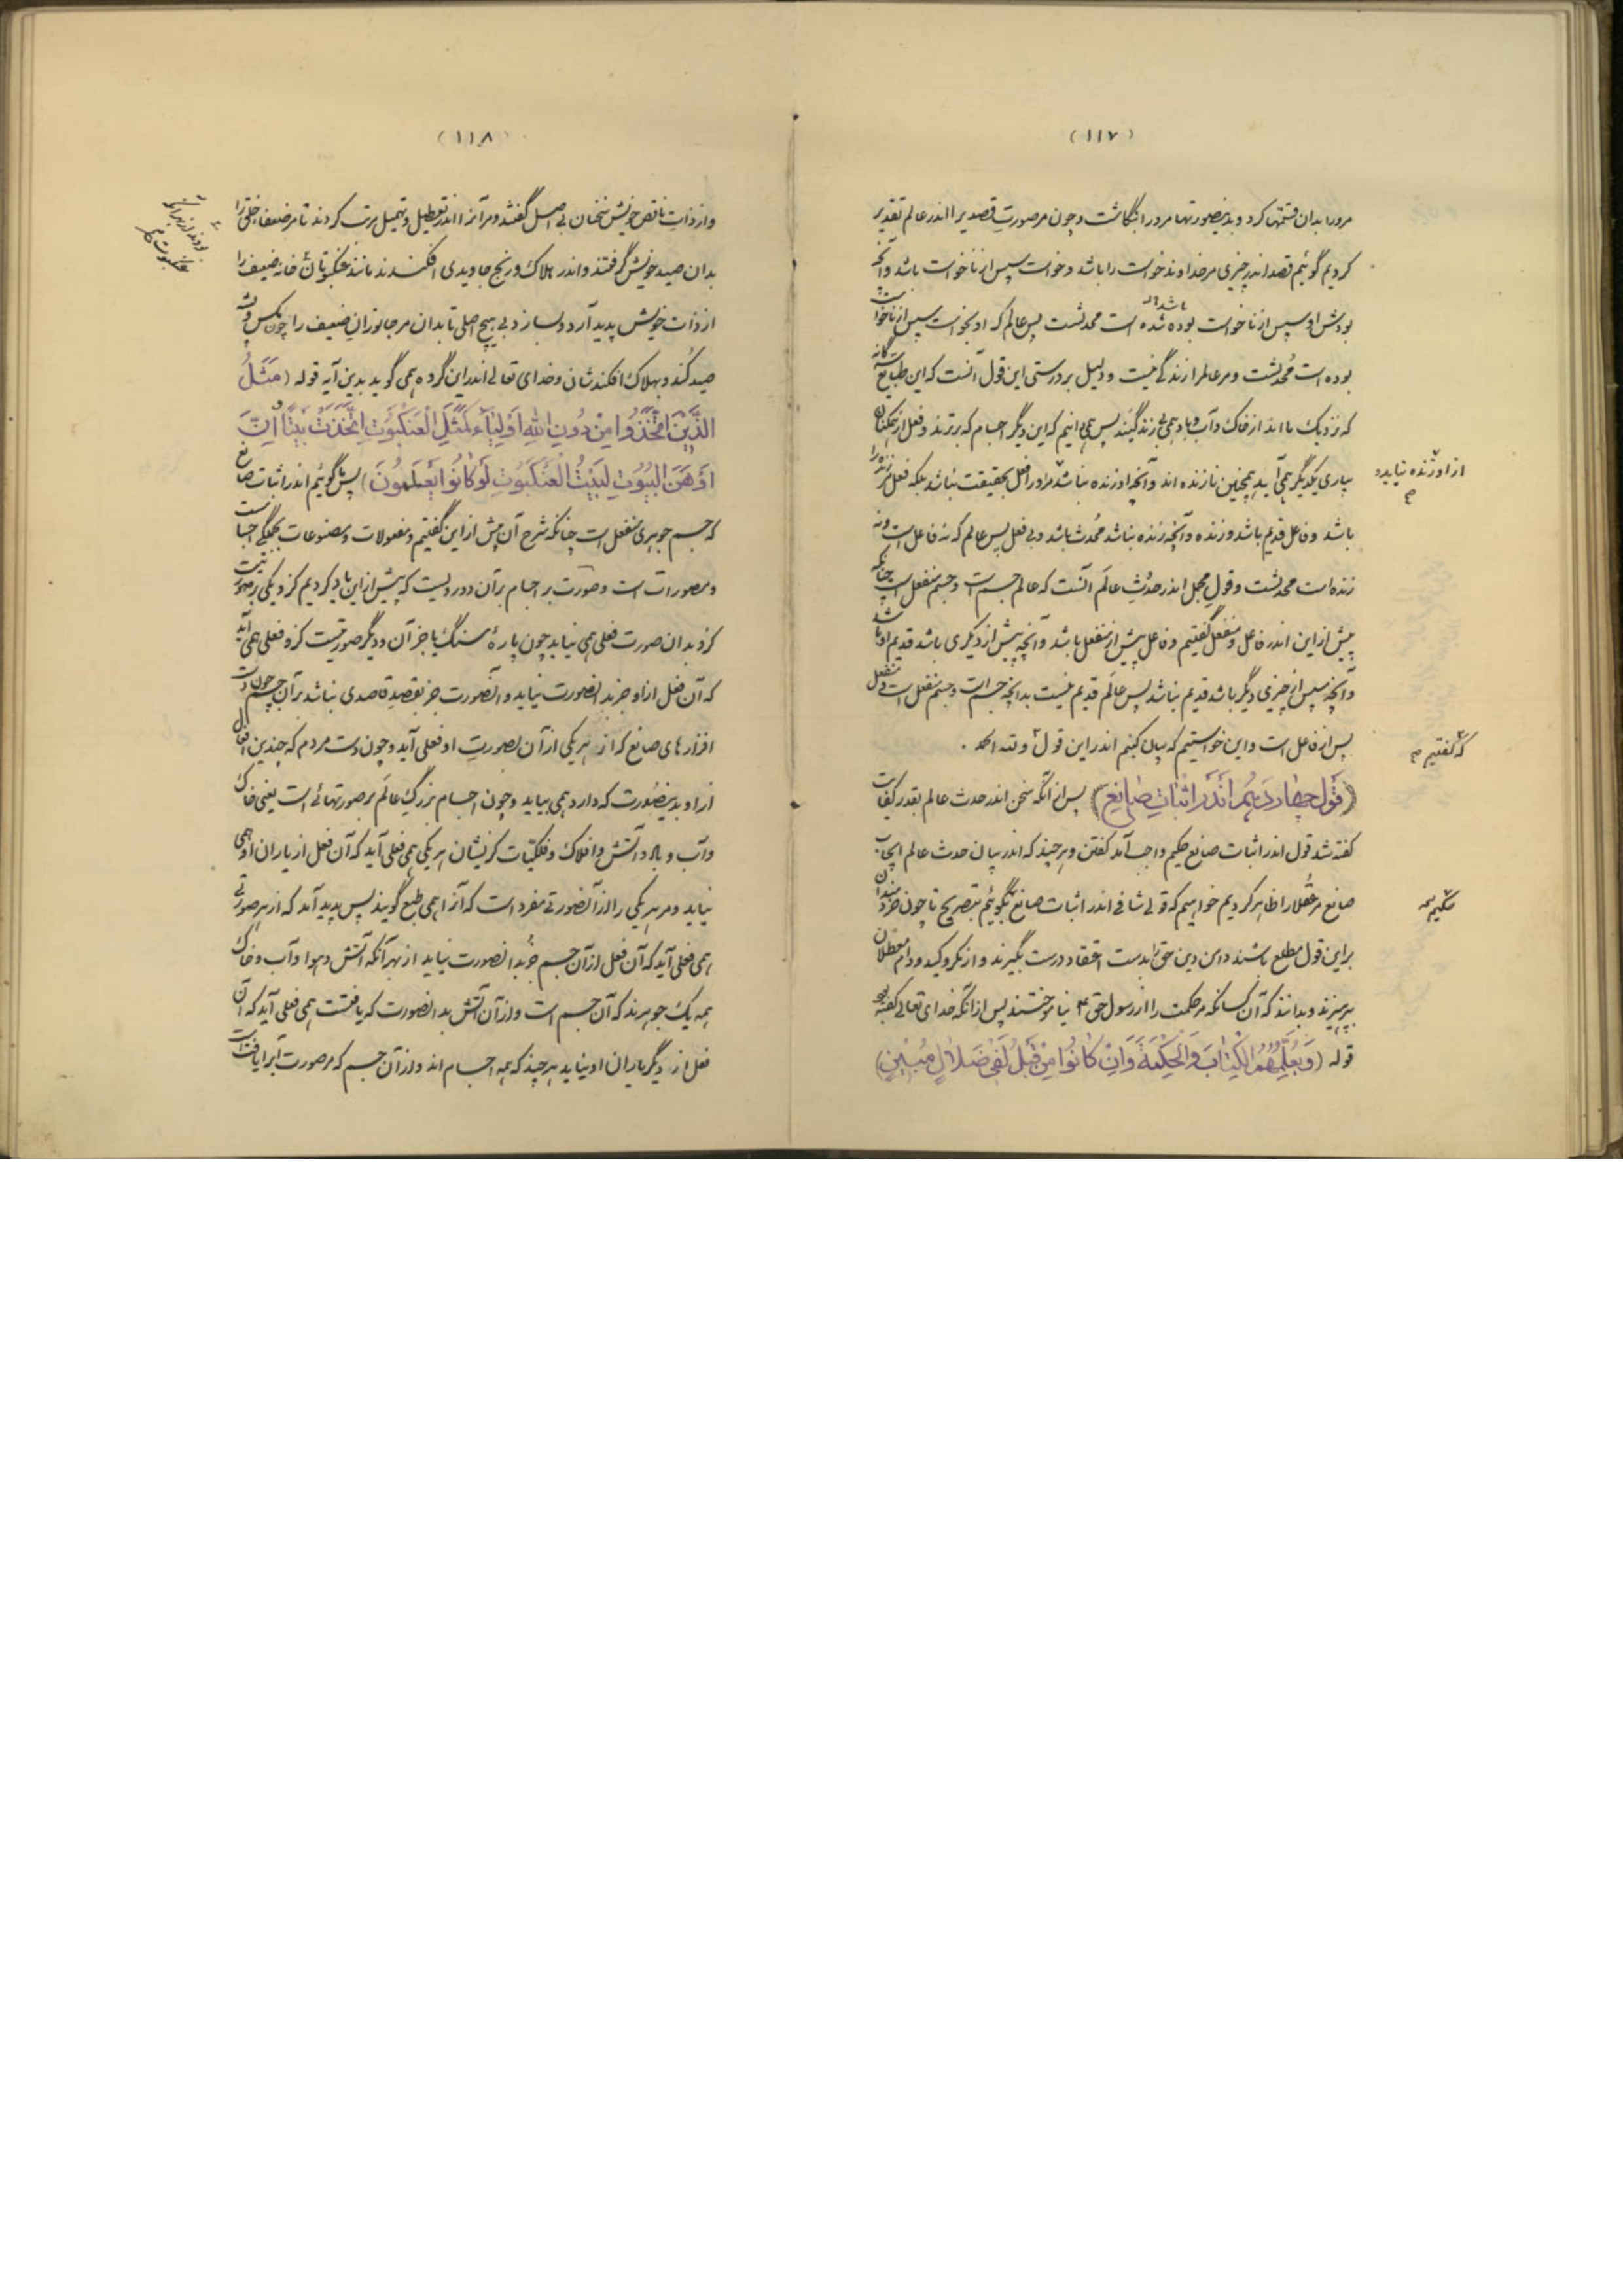 (۱۱۷)
مرورا بدان قسمتها کرد و بدینصورتها مرورا بنگاشت و چون مرصورت قصدیرا اندر عالم تقدیر
کردیم گوئیم قصد اندر چیزی مر خداوند خواست را باشد و خواست سپس از ناخواست باشد و آنچه
بودش او سپس از ناخواست بوده شده است محدثست پس عالم که او بخواست سپس از ناخواست
باشد
بوده است مُحدثست و مر عالم را زندگی نیست و دلیل بر درستی این قول آنست که این طبایع
که نزدیک ما اند از خاک و آب و باد همی بی زندگیند پس همی دانیم که این دیگر اجسام که برترند و فعل از همگنان
بیاری یکدیگر همی آید همچنین نازنده اند و آنچه او زنده نباشد مر او را فعل بحقیقت نباشد بلکه فعل مر زنده را
از او زنده نیاید
باشد و فاعل قدیم باشد و زنده و آنچه زنده نباشد مُحدث باشد و بی فعل پس عالم که نه فاعل است و نه
زنده است محدثست و قول مجمل اندر حدُث عالَم آنست که عالم جسم است و جسم منفعل است چنانکه
پیش از این اندر فاعل و منفعل گفتیم و فاعل پیش از منفعل باشد و آنچه پیش از دیگری باشد قدیم او باشد
و آنچه سپس از چیزی دیگر باشد قدیم نباشد پس عالَم قدیم نیست بدانچه جسم است و جسم منفعل است و منفعل
پس از فاعل است و این خواستیم که بیان کنیم اندر این قول و لله الحمد .
که گفتیم
(قول چهاردهم اندر اثبات صانع) پس از آنکه سخن اندر حدث عالم بقدر کفایت
گفته شد قول اندر اثبات صانع حکیم واجب آمد گفتن و هر چند که اندر بیان حدث عالم ایجاب
صانع مر عُقلا را ظاهر کردیم خواهیم که قولی شافی اندر اثبات صانع بگوئیم بتصریح تا چون خردمندان
بر این قول مطلع باشند دامن دین حق را بدست اعتقاد درست بگیرند و از مکر و کید و دام معطلان
بپرهیزند و بدانند که آن کسانکه مر حکمت را از رسول حق نیاموختند پس از آنکه خدای تعالی گفته بود
قوله (وَيُعَلِّمُهُمُ الْكِتَابَ وَالْحِكْمَةَ وَإِنْ كَانُوا مِنْ قَبْلُ لَفِي ضَلَالٍ مُبِينٍ)
(۱۱۸)
و از ذات ناقص خویش سخنان بی اصل گفتند و مر آنرا اندر تعطیل و تهمیل مرتب کردند تا مر ضعفا خلق را
بدان صید خویش گرفتند و اندر هلاک و رنج جاویدی افکندند مانند عنکبوتان خانه ضعیف را
از ذات خویش پدید آرد و بسازد بی هیچ اصلی تا بدان مر جانوران ضعیف را چون مگس و پشه
صید کُند و بهلاک افکندشان و خدای تعالی اندر این گروه همی گوید بدین آیه قوله (مَثَلُ
الَّذِينَ اتَّخَذُوا مِنْ دُونِ اللهِ أَوْلِيَاءَ كَمَثَلِ الْعَنْكَبُوتِ اتَّخَذَتْ بَيْتًا وَإِنَّ
أَوْهَنَ الْبُيُوتِ لَبَيْتُ الْعَنْكَبُوتِ لَوْ كَانُوا يَعْلَمُونَ) پس گوئیم اندر اثبات صانع
که جسم جوهری منفعل است چنانکه شرح آن پیش از این گفتیم و مفعولات و مصنوعات بجملگی اجسامست
و مصورات است و صورت بر اجسام بر آن دو رویست که پیش از این یاد کردیم کز و یکی بر صورتیست
کز و بدان صورت فعلی همی نیاید چون پارهٔ سنگ یا جز آن و دیگر صورتیست کز و فعلی همی آید
که آن فعل از او جز بدانصورت نیاید و آنصورت جز بقصد قاصدی نباشد بر آن جسم چون دست
افزارهای صانع که از هر یکی از آن بصورت او فعلی آید و چون دست مردم که چندین افعال
از او بدینصُورت که دارد همی بیاید و چون اجسام بزرگ عالَم بر صورتهائی است یعنی خاک
و آب و باد و آتش و افلاک و فلکیّات کز ایشان هر یکی همی فعلی آید که آن فعل از یاران او همی
نیاید و مر هر یکی را از آنصورتی مفرد است که آنرا همی طبع گویند پس پدید آمد که از هر صورتی
همی فعلی آید که آن فعل از آن جسم جُز بدانصورت نیاید از بهر آنکه آتش و هوا و آب و خاک
همه یک جوهرند که آن جسم است و از آن آتش بدانصورت که یافتست همی فعلی آید که آن
فعل از دیگر یاران او نیاید هر چند که همه اجسام اند و از آن جسم که مر صورت آبرا یافته است